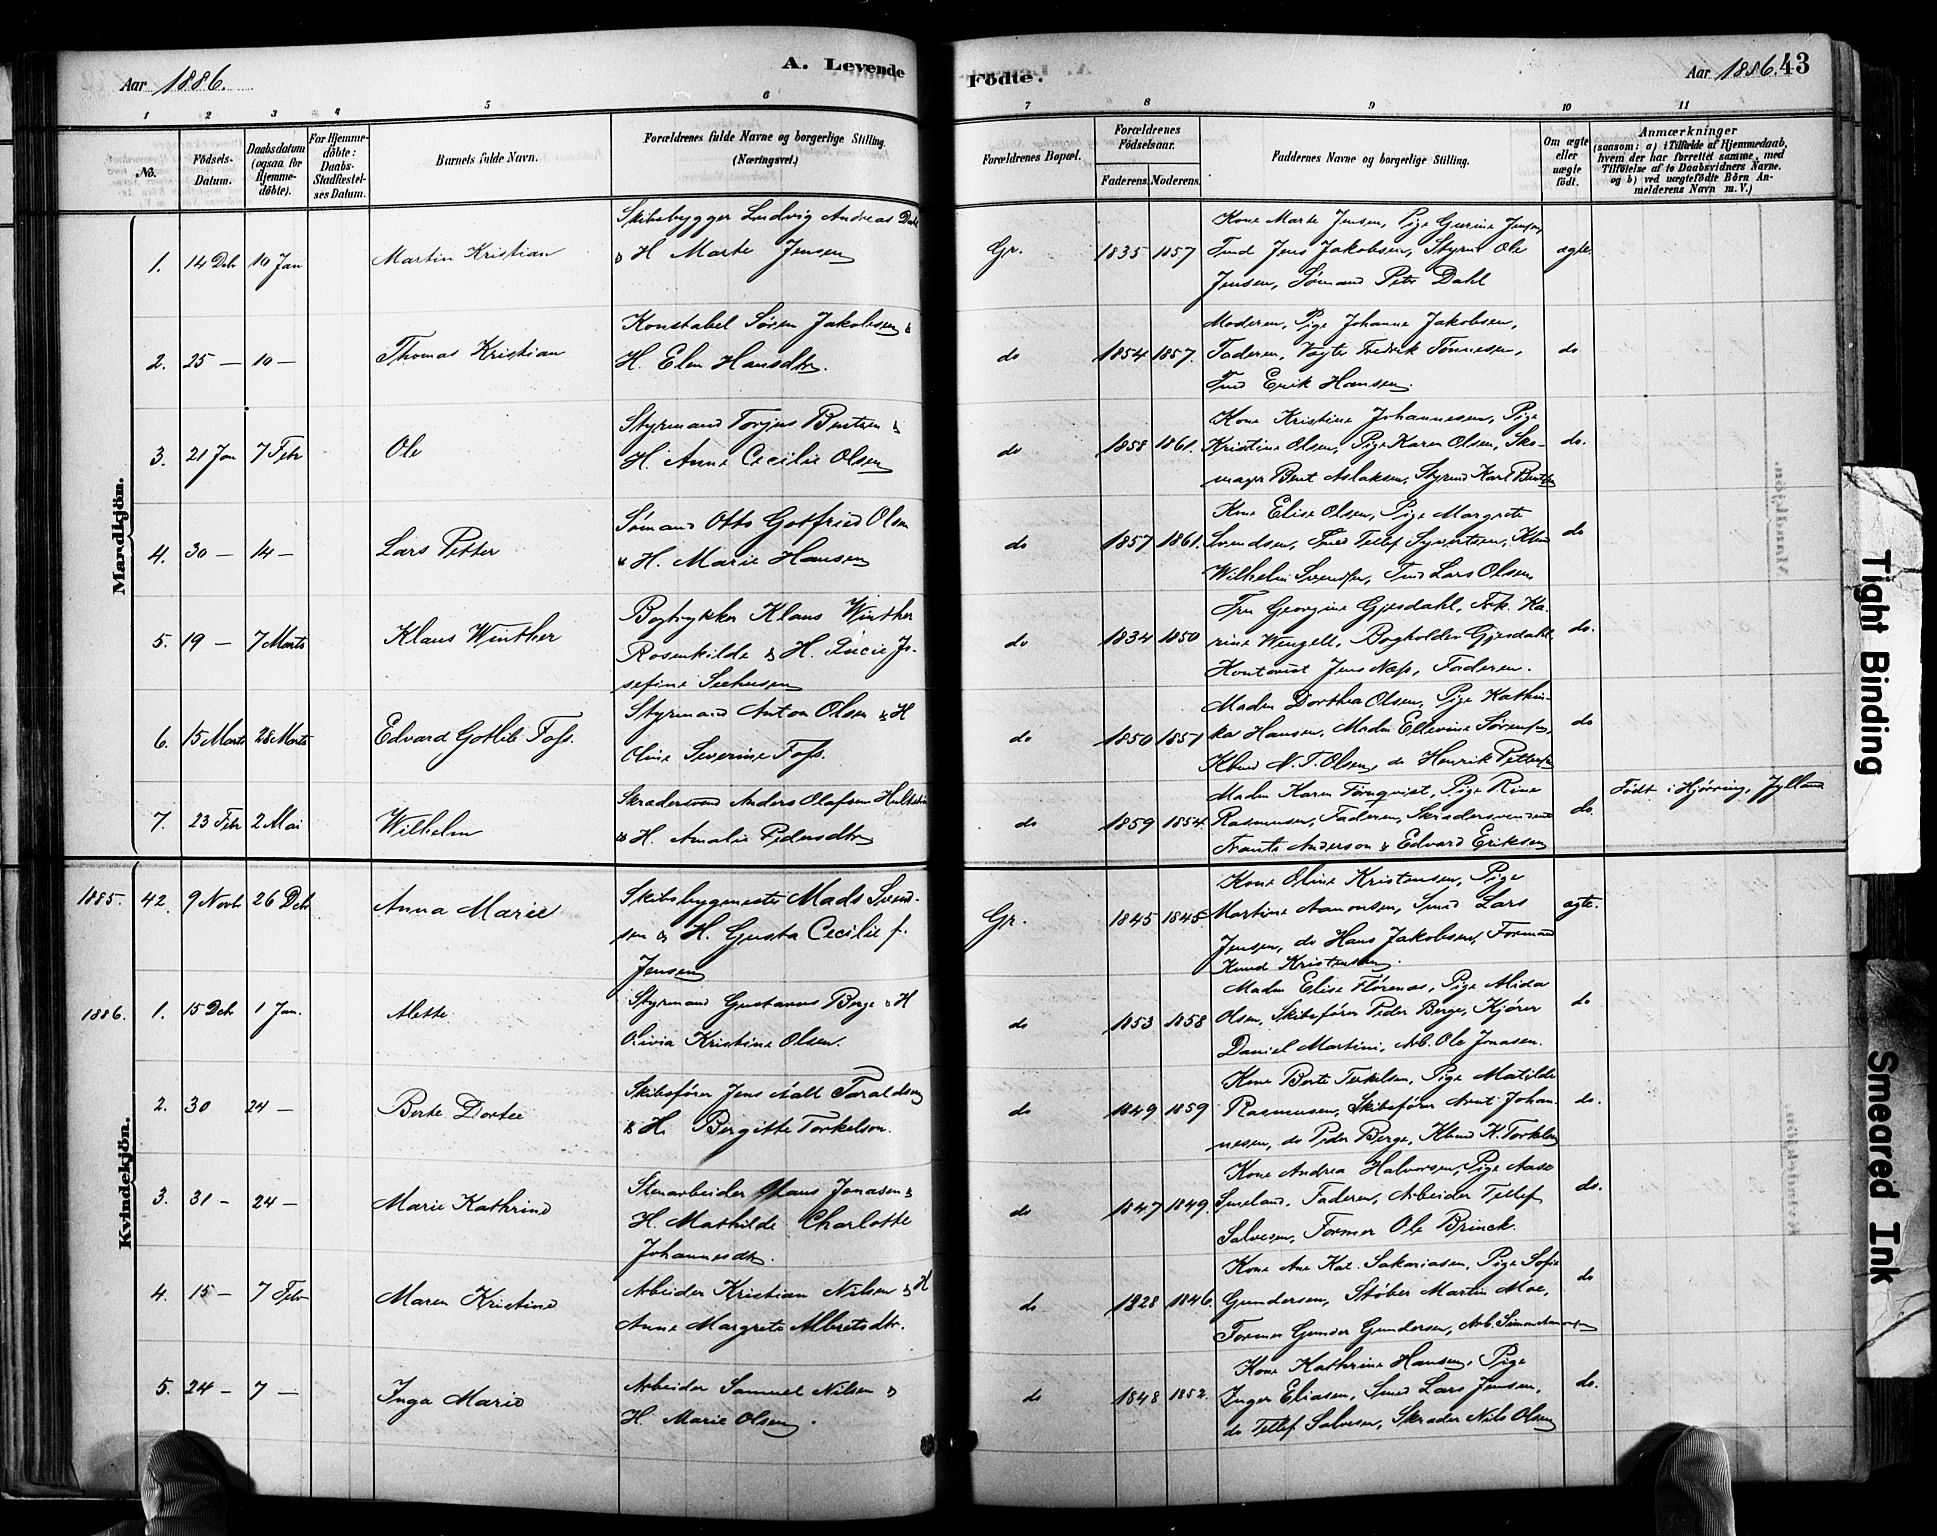 Aar 1886.
A. Levende
Födte.
Aar 1886. 43
1 2 3 4 5 6 7 8 9 10 11
No.
Födsels-Datum.
Daabsdatum (ogsaa for Hjemme-döbte).
For Hjemme-döbte: Daabs-Stadfæstel-ses Datum.
Barnets fulde Navn.
Forældrenes fulde Navne og borgerlige Stilling. (Næringsvei.)
Forældrenes Bopæl.
Forældrenes Födselsaar.
Faderens. Moderens.
Faddernes Navne og borgerlige Stilling.
Om ægte eller uægte födt.
Anmærkninger
(saasom: a) i Tilfælde af Hjemmedaab, hvem der har forrettet samme, med Tilföielse af to Daabsvidners Navne. og b) ved uægtefödte Börn An-melderens Navn m. V.)
Mandkjön.
1. 14 Dcb 10 Jan Martin Kristian
Skibsbygger Ludvig Andreas Dahl
& H Marte Jensen
Gr. 1835 1857
Kone Marte Jensen, Pige Gurine Jensen
Tmd Jens Jakobsen, Styrm Ole
Jensen, Sømand Peter Dahl
ægte.
2. 25 — 10 — Thomas Kristian
Konstabel Søren Jakobsen &
H. Elen Hansdtr.
do 1854 1857.
Moderen, Pige Johanne Jakobsen,
Faderen, Vagter Fredrik Tønnesen,
Tmd Erik Hansen.
do
3. 21 Jan 7 Febr Ole
Styrmand Torjus Bentsen &
H. Anne Cecilie Olsen
do 1858 1861.
Kone Kristine Johannesen, Pige
Kristine Olsen, Pige Karen Olsen, Sko-
mager Bent Aslaksen, Styrmd Karl Bentsen
do.
4. 30 — 14 — Lars Petter
Sømand Otto Gotfried Olsen
& H. Marie Hansen
do 1857 1861.
Kone Elise Olsen, Pige Margrete
Svendsen, Smed Tellef Syvertsen,
Wilhelm Svendsen, Tmd Lars Olsen
do
5. 19 — 7 Marts Klaus Winther
Bogtrykker Klaus Winther
Rosenkilde & H. Lucie Jo-
sefine Seehusen
do 1834 1850
Fru Georgine Gjesdahl, Frk. Ka-
rine Wengell, Bogholder Gjesdahl
Kontorist Jens Næss, Faderen.
do.
6. 15 Marts 28 Marts Edvard Gotlib Foss.
Styrmand Anton Olsen & H
Oline Severine Foss.
do 1850 1851
Madm Dorthea Olsen, Pige Kathin-
ka Hansen, Madm Ellevine Sørensen,
Kbmd N. T. Olsen, do Henrik Pettersen
do
7. 23 Febr 2 Mai Wilhelm
Skrædersvend Anders Olafsen Hultstein
& H. Amalie Pedersdtr
do 1859 1854.
Madm Karen Törnqvist, Pige Rine
Rasmussen, Faderen, Skrædersvendene
Frants Anderson & Edvard Eriksen
do.
Født i Hjørring, Jylland
Kvindekjön.
1885. 42. 9 Novbr 26 Dcb Anna Marie
Skibsbygmester Mads Svend-
sen & H. Gusta Cecilie f.
Jensen
Gr. 1845 1845
Kone Oline Kristensen, Pige
Martine Aanonsen, Smed Lars
Jensen, do Hans Jakobsen, Formand
Knud Kristensen.
ægte.
1886. 1. 15 Dcb 1 Jan. Alette
Styrmand Gustavus Berge & H
Olivia Kristine Olsen.
do 1853 1858
Madm Elise Florenas, Pige Alida
Olsen, Skibsfører Peder Berge, Kjører
Daniel Martini, Arb. Ole Jonasen.
do
2. 30 24 — Berte Dortee
Skibsfører Jens Aalt Taraldsen
& H. Bergitte Torkelson.
do 1849 1859
Kone Berte Terkelsen, Pige Matilde
Rasmussen, Skibsfører Arnt Johan-
nesen, do Peder Berge, Kbmd K. Torkelsen
do.
3. 31 — 24 — Marie Kathrine
Stenarbeider Claus Jonasen &
H. Mathilde Charlotte
Johannesdtr.
do 1847 1849.
Kone Andrea Halvorsen, Pige Aase
Smeland, Faderen, Arbeider Tellef
Salvesen, Former Ole Brinck.
do.
4. 15 — 7 Febr Maren Kristine
Arbeider Kristian Nilsen & H
Anne Margrete Albretsdtr.
do 1828 1846.
Kone Ane Kat. Sakariasen, Pige Sofie
Gundersen, Støber Martin Moe,
Former Gunder Gundersen, Arb.
do
5. 24 — 7 — Inga Marie
Arbeider Samuel Nilsen &
H. Marie Olsen.
do 1848 1852.
Kone Kathrine Hansen, Pige
Inger Eliasen, Smed Lars Jensen,
do Tellef Salvesen, Skræder Nils Olsen
do.
Tight Binding
Smeared Ink